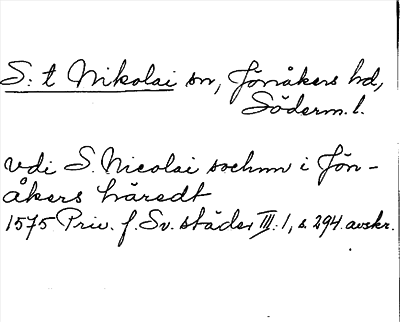 S:t Nikolai sn, Jönåkers hd,
Söderm.l.
vdi S. Nicolai sochnn i Jön-
åkers häredt
1575 Priv. f. Sv. städer III:1, s. 294. avskr.